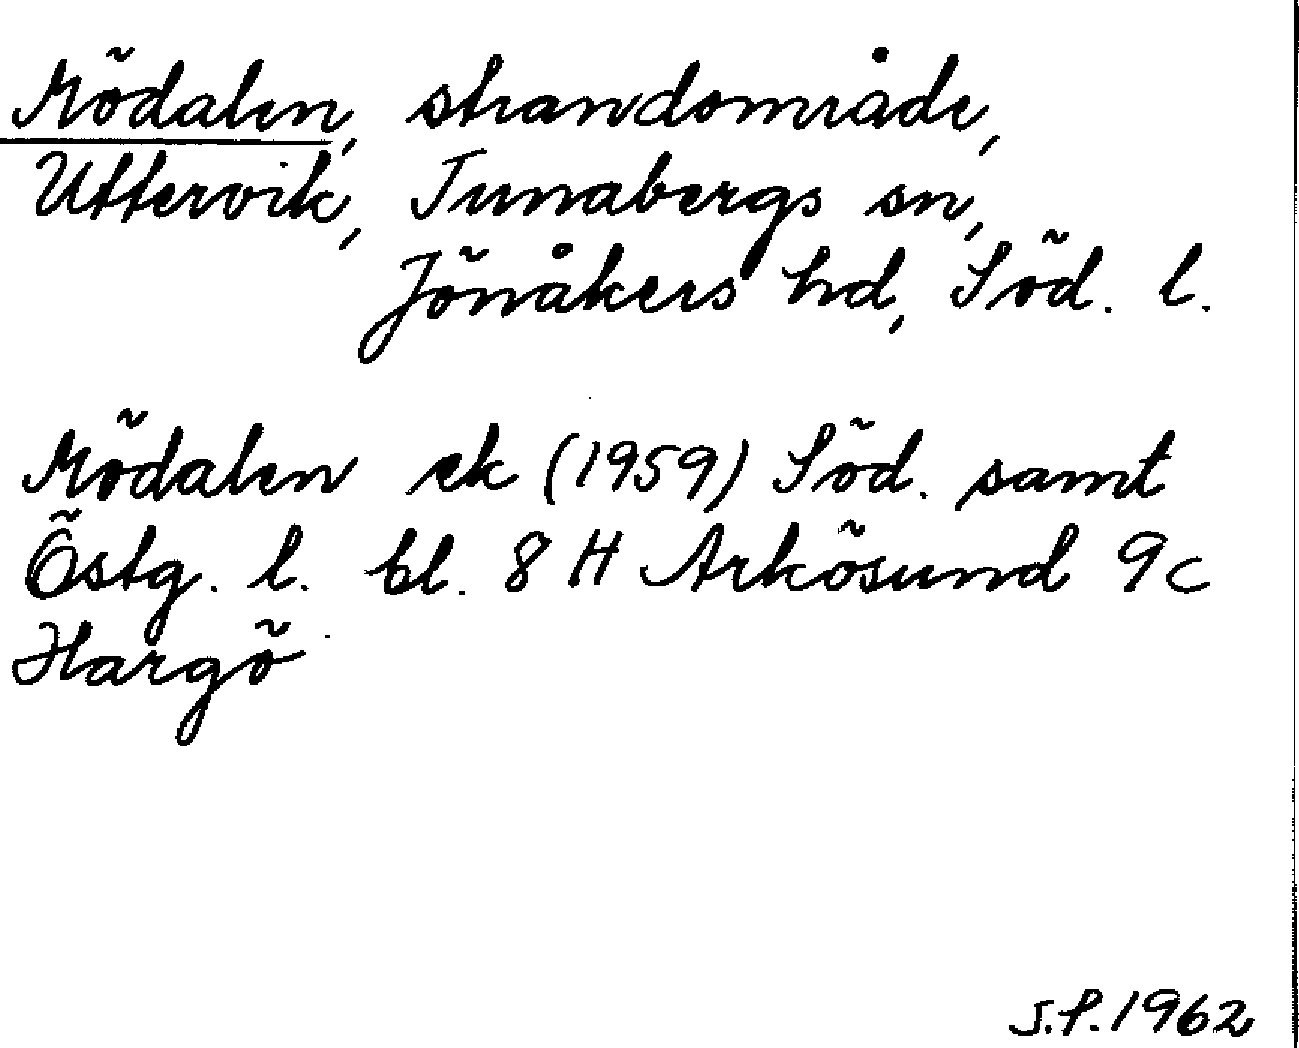 Mödalen, strandområde,
Uttervik, Tunabergs sn,
Jönåkers hd, Söd. l.
Mödalen ek (1959) Söd. samt
Östg. l. bl. 8 H Arkösund 9c
Hargö
J.P. 1962